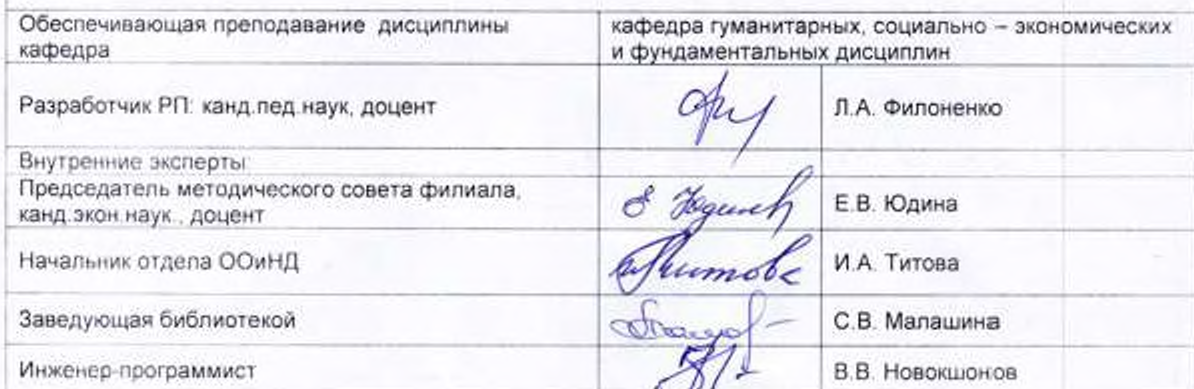 Обеспечивающая преподавание дисциплины
кафедра
кафедра гуманитарных, социально – экономических
и фундаментальных дисциплин
Разработчик РП: канд.пед.наук, доцент
Л.А. Филоненко
Внутренние эксперты:
Председатель методического совета филиала,
канд.экон.наук., доцент
Е.В. Юдина
Начальник отдела ООиНД
И.А. Титова
Заведующая библиотекой
С.В. Малашина
Инженер-программист
В.В. Новокшонов